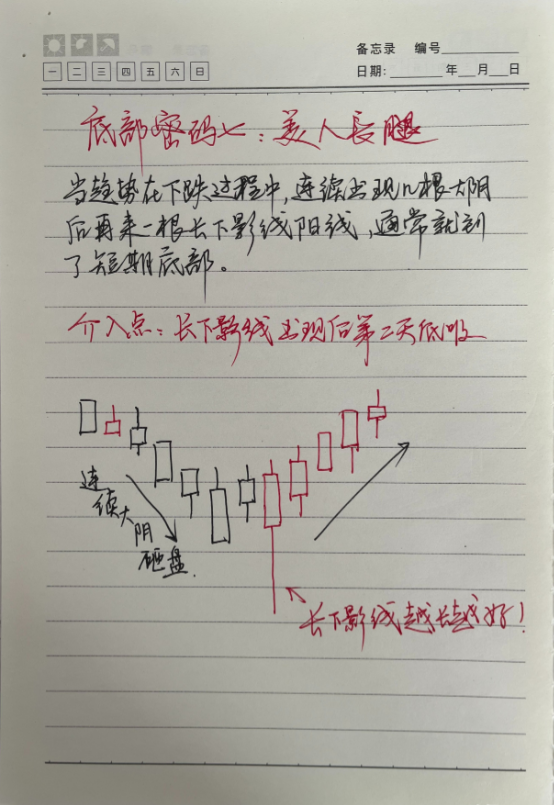 备忘录 编号
一 二 三 四 五 六 日
日期: 年 月 日
底部密码七:美人长腿
当趋势在下跌过程中,连续出现几根大阴
后再来一根长下影线阳线,通常就到
了短期底部。
介入点:长下影线出现后第二天低吸
连续大阴砸盘
长下影线越长越好!